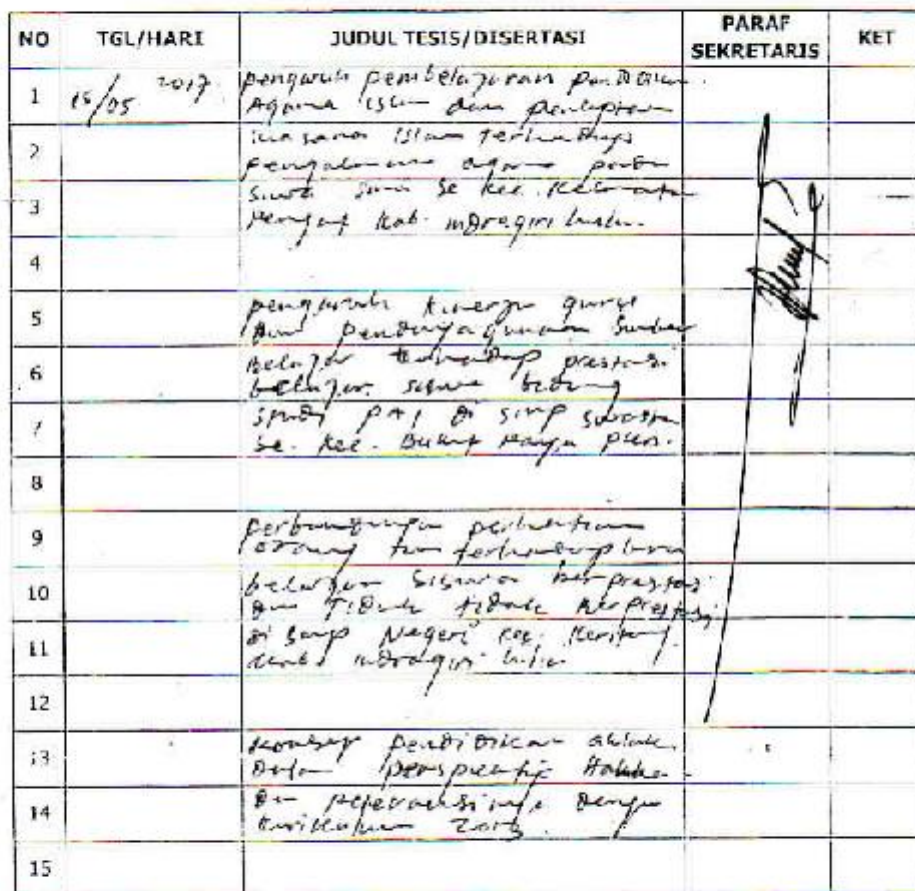 NO TGL/HARI JUDUL TESIS/DISERTASI PARAF SEKRETARIS KET
1 15/05 2017 pengaruh pembelajaran pendidikan
Agama Islam dan penciptaan
2 suasana Islam terhadap
pengalaman agama pada
3 siswa se kec.
Rengat Kab. indragiri hulu.
4
5 pengaruh kinerja guru
dan pendayagunaan sumber
6 Belajar terhadap prestasi
belajar siswa bidang
7 studi PAI di smp swasta
se. kec. Bukit Raya
8
9 perbandingan perhatian
orang tua terhadap
10 belajar siswa berprestasi
dan Tidak tidak berprestasi
11 di smp Negeri kec. Keritang
indragiri hilir
12
13 konsep pendidikan akhlak
Dalam perspektif Hamka
14 dan relevansinya dengan
kurikulum 2013.
15